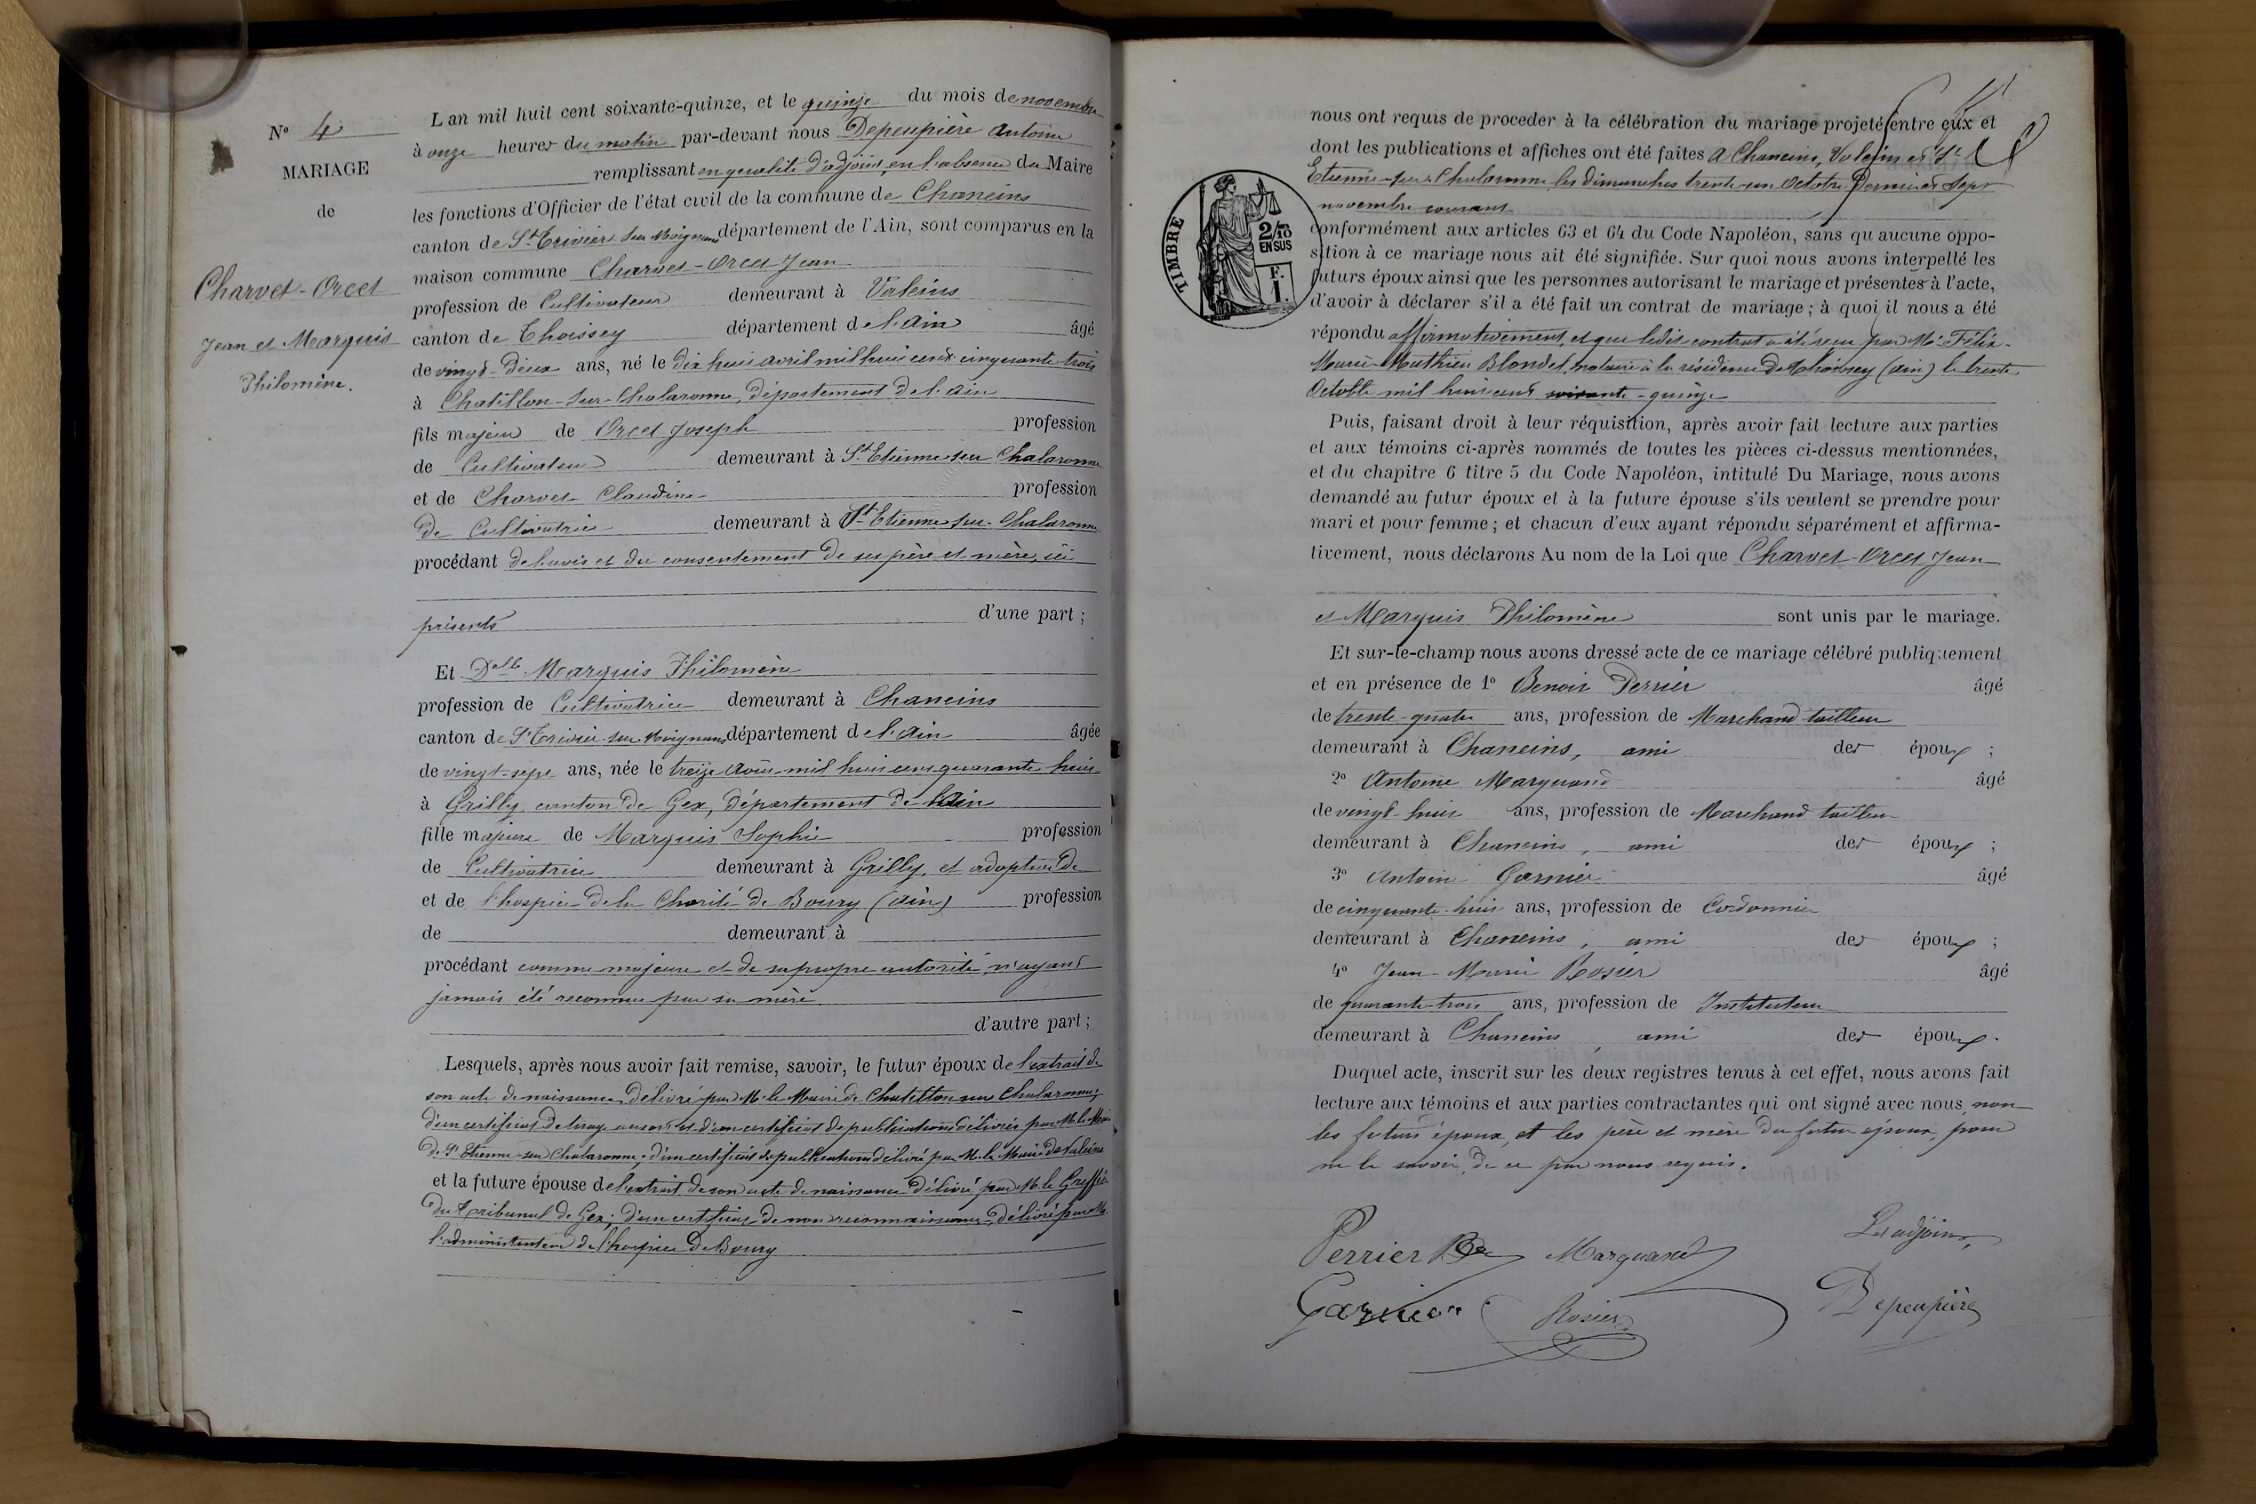 Nº 4
MARIAGE
de
Charvet-Orcet
Jean et Marquis
Philomène.
L'an mil huit cent soixante-quinze, et le quinze du mois de novembre
à onze heures du matin par-devant nous Depeupière Antoine
remplissant en qualité d'adjoint, en l'absence du Maire
les fonctions d'Officier de l'état civil de la commune de Chaneins
canton de St Trivier sur Moignans département de l'Ain, sont comparus en la
maison commune Charvet-Orcet Jean
profession de Cultivateur demeurant à Valeins
canton de Thoissey département de l'Ain âgé
de vingt-deux ans, né le dix huit avril mil huit cent cinquante trois
à Chatillon-sur-Chalaronne, département de l'Ain
fils majeur de Orcet Joseph profession
de Cultivateur demeurant à St Etienne sur Chalaronne
et de Charvet Claudine profession
de Cultivatrice demeurant à St Etienne sur Chalaronne
procédant de l'avis et du consentement de ses père et mère, ici
présents d'une part ;
Et Delle Marquis Philomène
profession de Cultivatrice demeurant à Chaneins
canton de St Trivier sur Moignans département de l'Ain âgée
de vingt-sept ans, née le treize août mil huit cent quarante huit
à Grilly canton de Gex, département de l'Ain
fille majeure de Marquis Sophie profession
de Cultivatrice demeurant à Grilly, et adoptive de
et de l'hospice de la Charité de Bourg (Ain) profession
de demeurant à
procédant comme majeure et de sa propre autorité n'ayant
jamais été reconnue par sa mère
d'autre part ;
Lesquels, après nous avoir fait remise, savoir, le futur époux de l'extrait de
son acte de naissance délivré par M. le Maire de Chatillon sur Chalaronne,
d'un certificat de tirage au sort et d'un certificat de publications délivrés par M. le Maire
de St Etienne-sur Chalaronne ; d'un certificat de publications délivré par M. le Maire de Valeins
et la future épouse de l'extrait de son acte de naissance délivré par M. le Greffier
du Tribunal de Gex ; d'un certificat de non reconnaissance, délivré par M.
l'administrateur de l'hospice de Bourg
nous ont requis de proceder à la célébration du mariage projeté entre eux et
dont les publications et affiches ont été faites à Chaneins, Valeins et St
Etienne-sur-Chalaronne les dimanches trente-un octobre dernier et sept
novembre courant
conformément aux articles 63 et 64 du Code Napoléon, sans qu'aucune oppo-
sition à ce mariage nous ait été signifiée. Sur quoi nous avons interpellé les
futurs époux ainsi que les personnes autorisant le mariage et présentes à l'acte,
d'avoir à déclarer s'il a été fait un contrat de mariage ; à quoi il nous a été
répondu affirmativement, et que ledit contrat a été reçu par Me Félix-
Marie-Mathieu Blondet, notaire à la résidence de Thoissey (ain) le trente
Octobre mil huit cent soixante-quinze
Puis, faisant droit à leur réquisition, après avoir fait lecture aux parties
et aux témoins ci-après nommés de toutes les pièces ci-dessus mentionnées,
et du chapitre 6 titre 5 du Code Napoléon, intitulé Du Mariage, nous avons
demandé au futur époux et à la future épouse s'ils veulent se prendre pour
mari et pour femme ; et chacun d'eux ayant répondu séparément et affirma-
tivement, nous déclarons Au nom de la Loi que Charvet-Orcet Jean
et Marquis Philomène sont unis par le mariage.
Et sur-le-champ nous avons dressé acte de ce mariage célébré publiquement
et en présence de 1º Benoit Perrier âgé
de trente-quatre ans, profession de Marchand tailleur
demeurant à Chaneins, ami des époux ;
2º Antoine Marquand âgé
de vingt-huit ans, profession de Marchand tailleur
demeurant à Chaneins, ami des époux ;
3º Antoine Garnier âgé
de cinquante-huit ans, profession de Cordonnier
demeurant à Chaneins, ami des époux ;
4º Jean-Marie Rosier âgé
de quarante-trois ans, profession de Instituteur
demeurant à Chaneins, ami des époux.
Duquel acte, inscrit sur les deux registres tenus à cet effet, nous avons fait
lecture aux témoins et aux parties contractantes qui ont signé avec nous, non
les futurs époux, et les père et mère du futur époux, pour
ne le savoir, de ce par nous requis.
Perrier Marquand L'adjoint,
Garnier Rosier Depeupière
TIMBRE
2/10
EN SUS
F.
1.